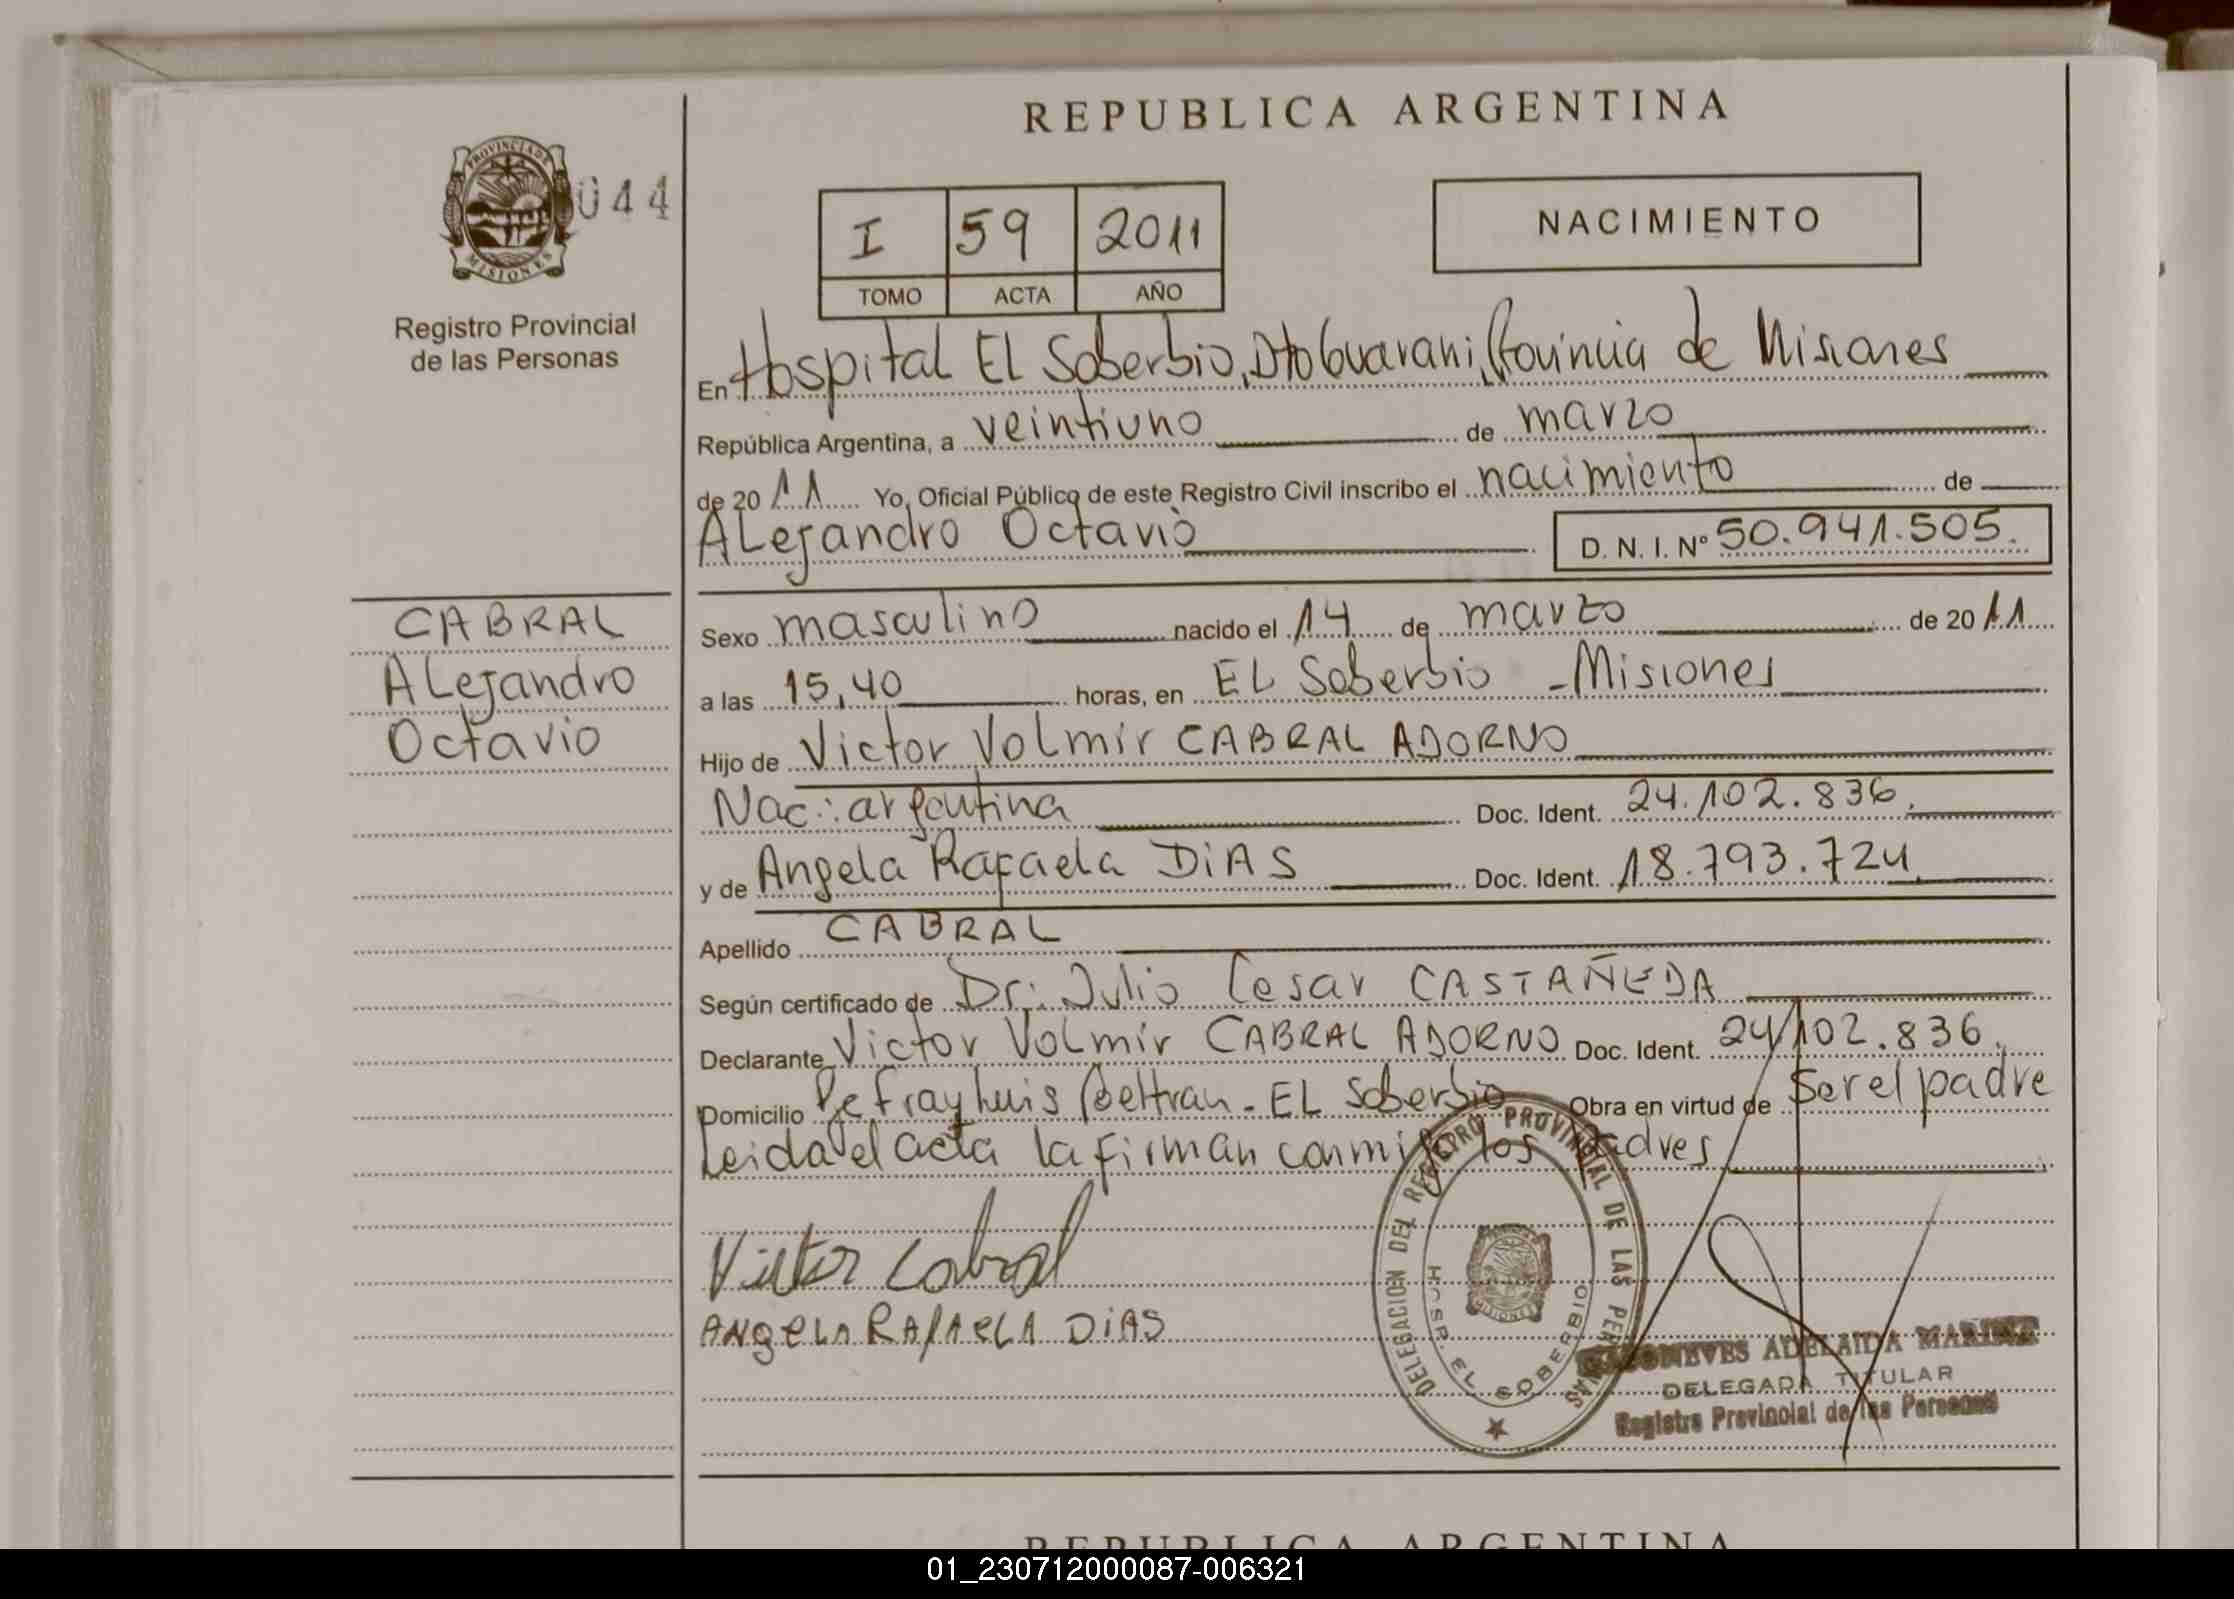 REPUBLICA ARGENTINA
PROVINCIA DE
MISIONES
044
Registro Provincial
de las Personas
I 59 2011
TOMO ACTA AÑO
NACIMIENTO
En Hospital El Soberbio, Dto Guarani, Provincia de Misiones
República Argentina, a veintiuno de marzo
de 2011 Yo, Oficial Público de este Registro Civil inscribo el nacimiento de
Alejandro Octavio D. N. I. Nº 50.941.505.
CABRAL
Alejandro
Octavio
Sexo masculino nacido el 14 de marzo de 2011
a las 15,40 horas, en El Soberbio - Misiones
Hijo de Victor Volmir CABRAL ADORNO
Nac.: argentina Doc. Ident. 24.102.836.
y de Angela Rafaela DIAS Doc. Ident. 18.793.724.
Apellido CABRAL
Según certificado de Dr. Julio Cesar CASTAÑEDA
Declarante Victor Volmir CABRAL ADORNO Doc. Ident. 24.102.836.
Domicilio Pe Fray Luis Beltran - El Soberbio Obra en virtud de ser el padre
Leida el acta la firman conmigo los padres
Victor Cabral
ANgeLA RAfAeLA DiAS
DELEGACION DEL REGISTRO PROVINCIAL DE LAS PERSONAS
HOSP. EL SOBERBIO
MISIONES
ADELAIDA
DELEGADA TITULAR
Registro Provincial de las Personas
REPUBLICA ARGENTINA
01_230712000087-006321